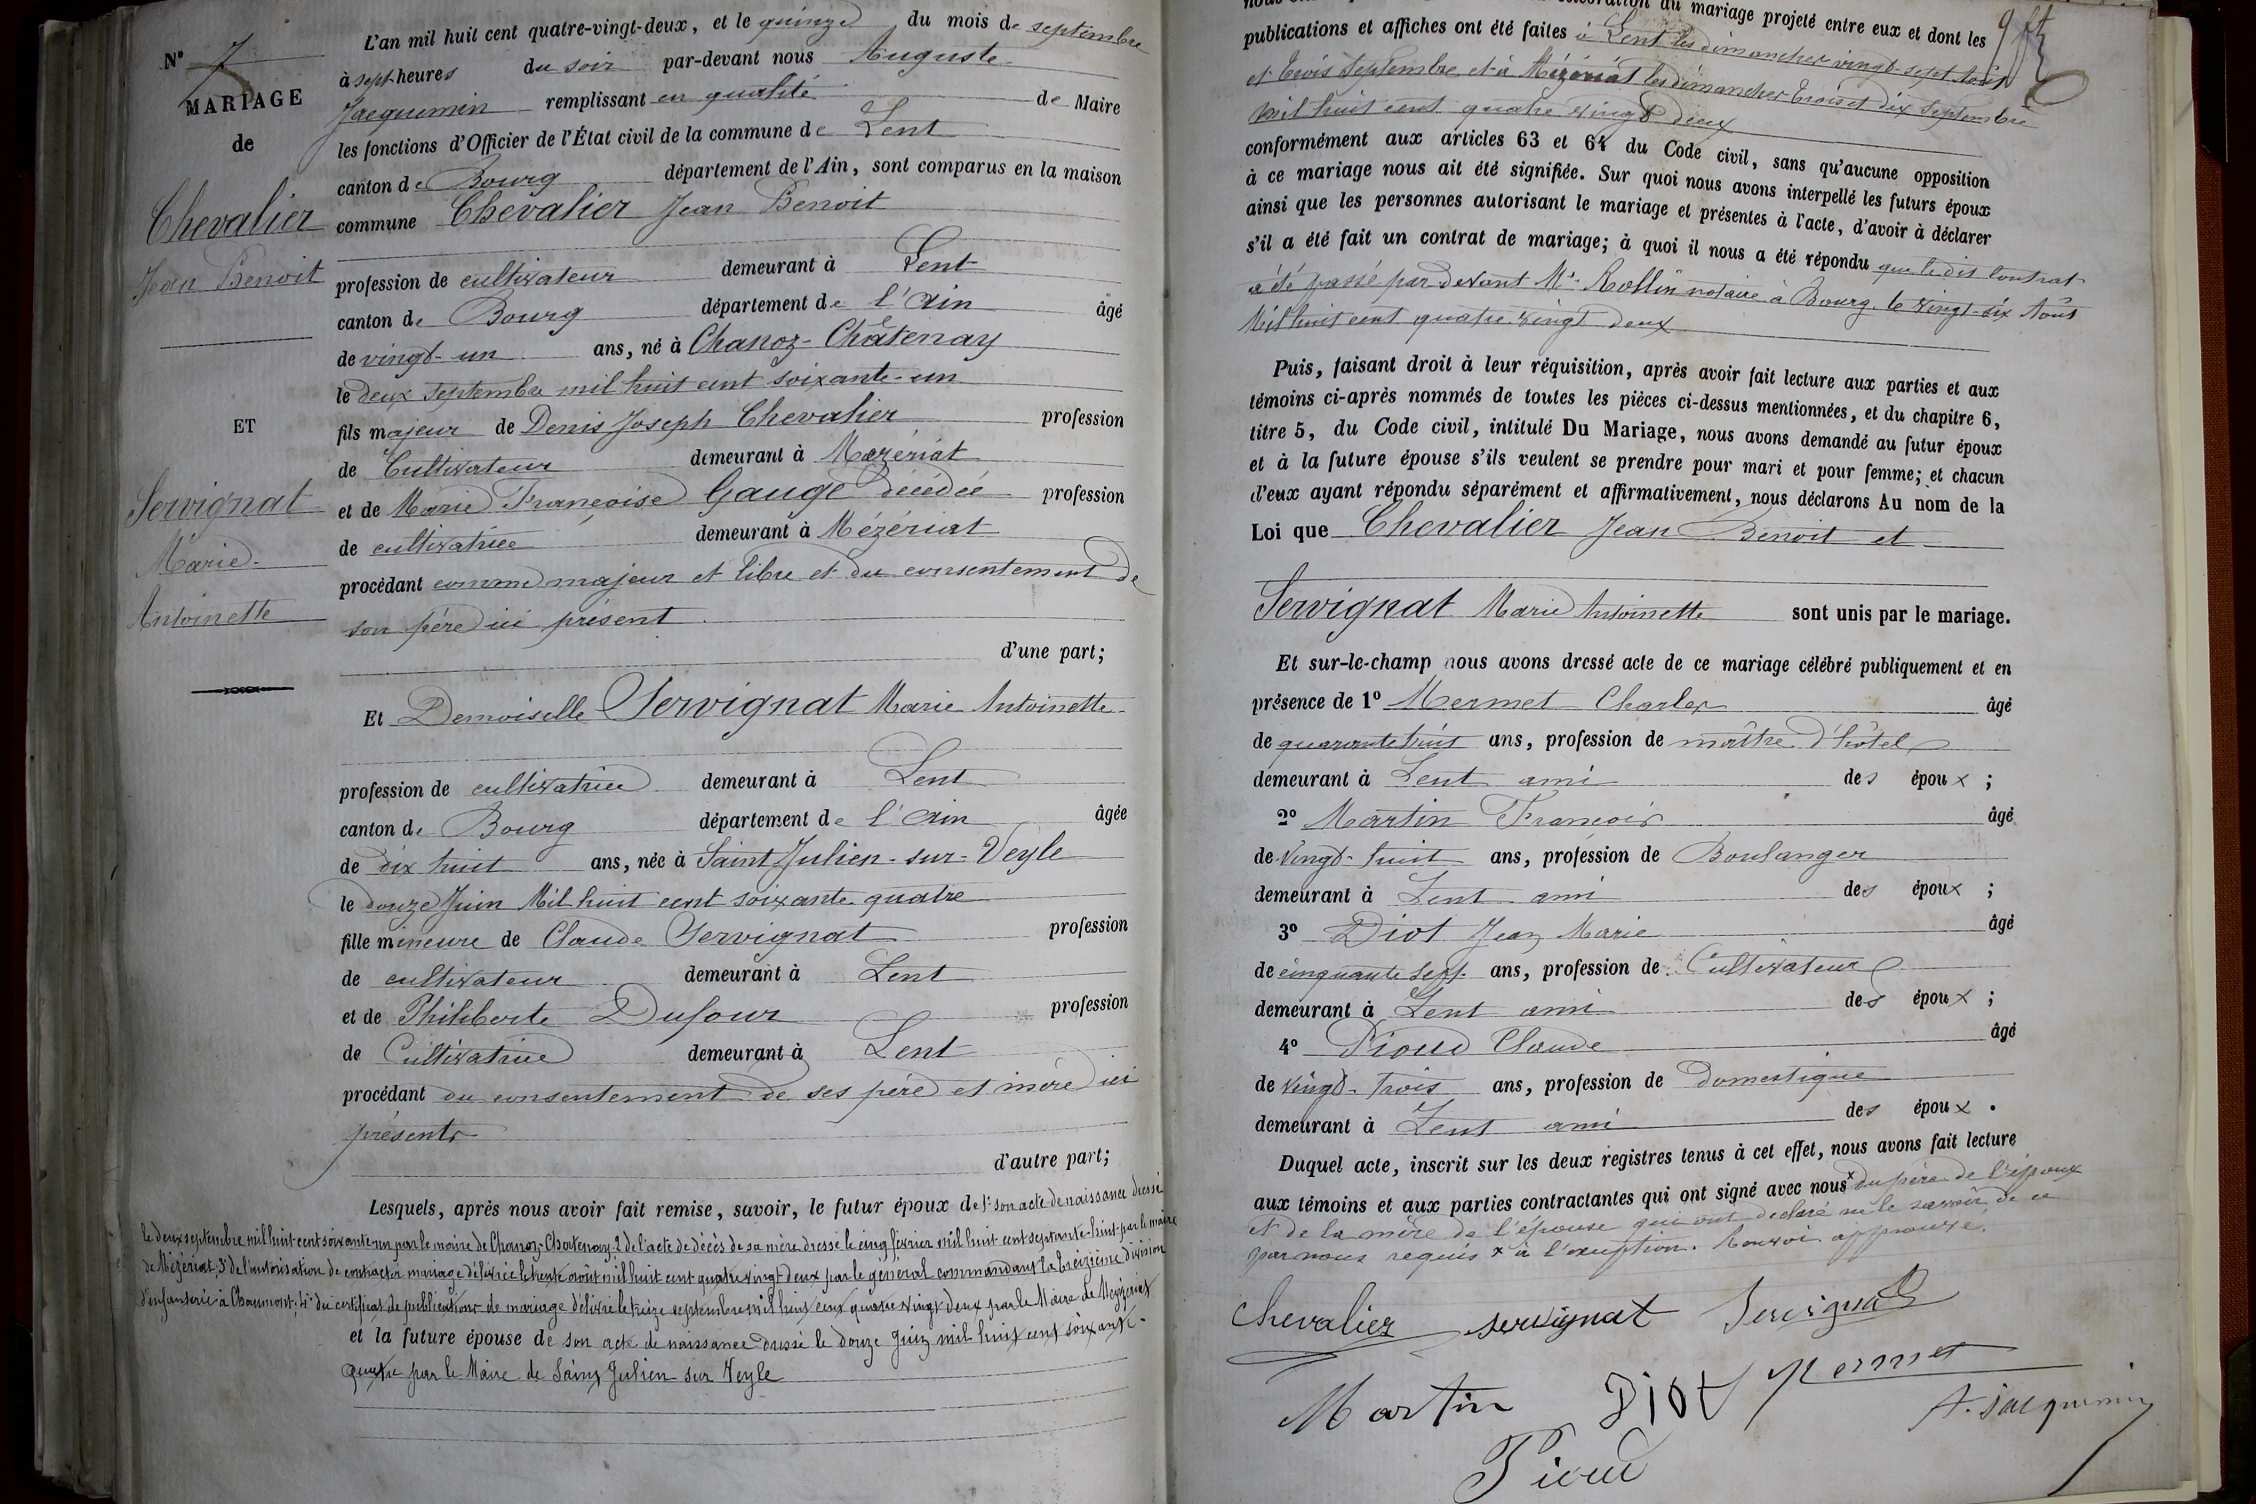 N° 7
MARIAGE
de
Chevalier
Jean Benoit
ET
Servignat
Marie
Antoinette
L'an mil huit cent quatre-vingt-deux, et le quinze du mois de septembre
à sept heures du soir par-devant nous Auguste
Jacquemin remplissant en qualité de Maire
les fonctions d'Officier de l'État civil de la commune de Lent
canton de Bourg département de l'Ain, sont comparus en la maison
commune Chevalier Jean Benoit
profession de cultivateur demeurant à Lent
canton de Bourg département de l'Ain âgé
de vingt-un ans, né à Chanoz-Châtenay
le deux septembre mil huit cent soixante-un
fils majeur de Denis Joseph Chevalier profession
de Cultivateur demeurant à Mézériat
et de Marie Françoise Gauge décédée profession
de cultivatrice demeurant à Mézériat
procédant comme majeur et libre et du consentement de
son père ici présent
d'une part;
Et Demoiselle Servignat Marie Antoinette
profession de cultivatrice demeurant à Lent
canton de Bourg département de l'Ain âgée
de dix huit ans, née à Saint Julien-sur-Veyle
le douze Juin Mil huit cent soixante quatre
fille mineure de Claude Servignat profession
de cultivateur demeurant à Lent
et de Philiberte Dufour profession
de Cultivatrice demeurant à Lent
procédant du consentement de ses père et mère ici
présents
d'autre part;
Lesquels, après nous avoir fait remise, savoir, le futur époux de 1° son acte de naissance dressé
le deux septembre mil huit cent soixante-un par le maire de Chanoz-Chatenay; 2° de l'acte de décès de sa mère dressé le cinq février mil huit cent septante-huit par le maire
de Mézériat; 3° de l'autorisation de contracter mariage délivrée le trente août mil huit cent quatre vingt deux par le général commandant la treizième division
d'infanterie à Chaumont; 4° du certificat de publications de mariage délivré le treize septembre mil huit cent quatre vingt deux par le Maire de Mézériat
et la future épouse de son acte de naissance dressé le douze Juin mil huit cent soixante-
quatre par le Maire de Saint Julien sur Veyle
du mariage projeté entre eux et dont les
publications et affiches ont été faites à Lent les dimanches vingt-sept Août
et trois Septembre et à Mézériat les dimanches trois et dix septembre
Mil huit cent quatre vingt deux
conformément aux articles 63 et 64 du Code civil, sans qu'aucune opposition
à ce mariage nous ait été signifiée. Sur quoi nous avons interpellé les futurs époux
ainsi que les personnes autorisant le mariage et présentes à l'acte, d'avoir à déclarer
s'il a été fait un contrat de mariage; à quoi il nous a été répondu que le dit Contrat
a été passé par devant Me Rollin notaire à Bourg le vingt-six Août
Mil huit cent quatre vingt deux
Puis, faisant droit à leur réquisition, après avoir fait lecture aux parties et aux
témoins ci-après nommés de toutes les pièces ci-dessus mentionnées, et du chapitre 6,
titre 5, du Code civil, intitulé Du Mariage, nous avons demandé au futur époux
et à la future épouse s'ils veulent se prendre pour mari et pour femme; et chacun
d'eux ayant répondu séparément et affirmativement, nous déclarons Au nom de la
Loi que Chevalier Jean Benoit et
Servignat Marie Antoinette sont unis par le mariage.
Et sur-le-champ nous avons dressé acte de ce mariage célébré publiquement et en
présence de 1° Mermet Charles âgé
de quarante huit ans, profession de maître d'hôtel
demeurant à Lent ami des époux ;
2° Martin François âgé
de vingt-huit ans, profession de Boulanger
demeurant à Lent ami des époux ;
3° Diot Jean Marie âgé
de cinquante sept ans, profession de Cultivateur
demeurant à Lent ami des époux ;
4° Pioud Claude âgé
de vingt-trois ans, profession de Domestique
demeurant à Lent ami des époux .
Duquel acte, inscrit sur les deux registres tenus à cet effet, nous avons fait lecture
aux témoins et aux parties contractantes qui ont signé avec nous x du père de l'époux
et de la mère de l'épouse qui ont déclaré ne le savoir de ce
par nous requis x à l'exception. Renvoi approuvé.
Chevalier servignat Servignat
Martin Diot Mermet
A. Jacquemin
Pioud